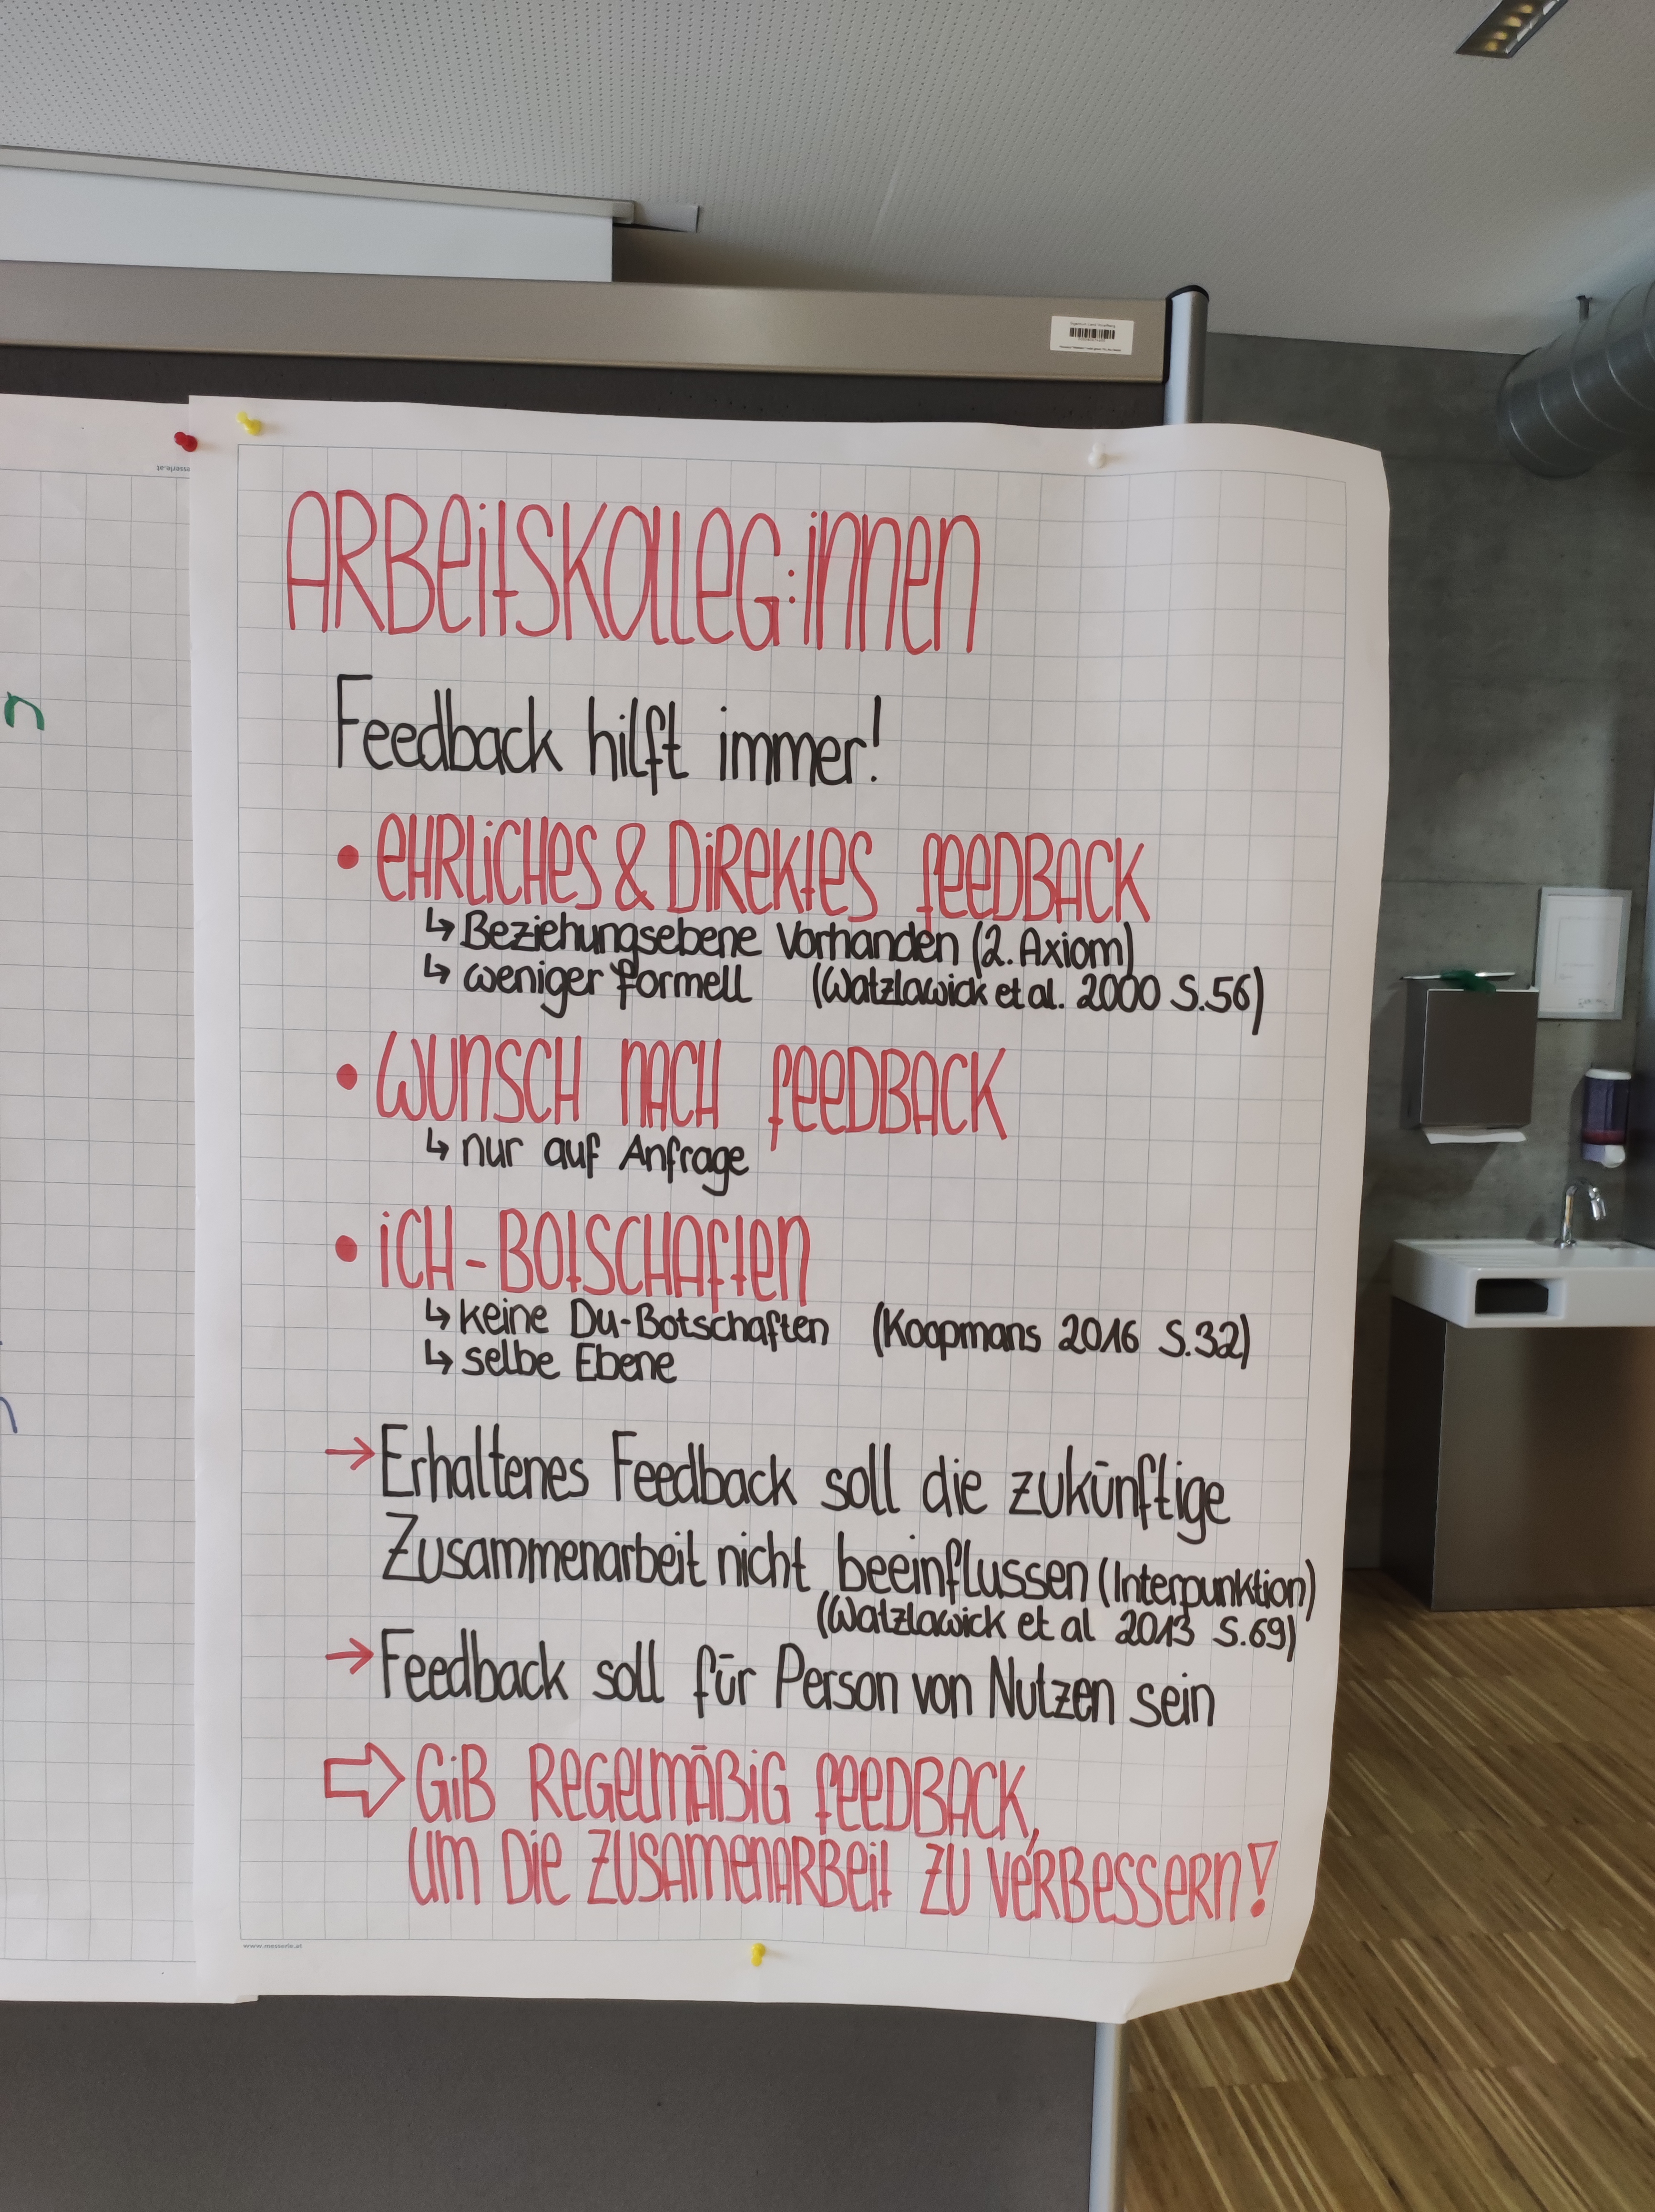 ARBeitSKolleG:innen
Feedback hilft immer!
• eHRLiCHeS & DiReKteS feeDBACK
↳ Beziehungsebene Vorhanden (2. Axiom)
↳ weniger formell (Watzlawick et al. 2000 S.56)
• WUNSCH NACH feeDBACK
↳ nur auf Anfrage
• iCH-BOtSCHAften
↳ keine Du-Botschaften (Koopmans 2016 S.32)
↳ selbe Ebene
→ Erhaltenes Feedback soll die zukünftige
Zusammenarbeit nicht beeinflussen (Interpunktion)
(Watzlawick et al 2013 S.69)
→ Feedback soll für Person von Nutzen sein
⇨ GiB ReGelmäßiG feeDBACK,
um Die ZUSAmenARBeit ZU VeRBeSSeRn!
www.messerle.at